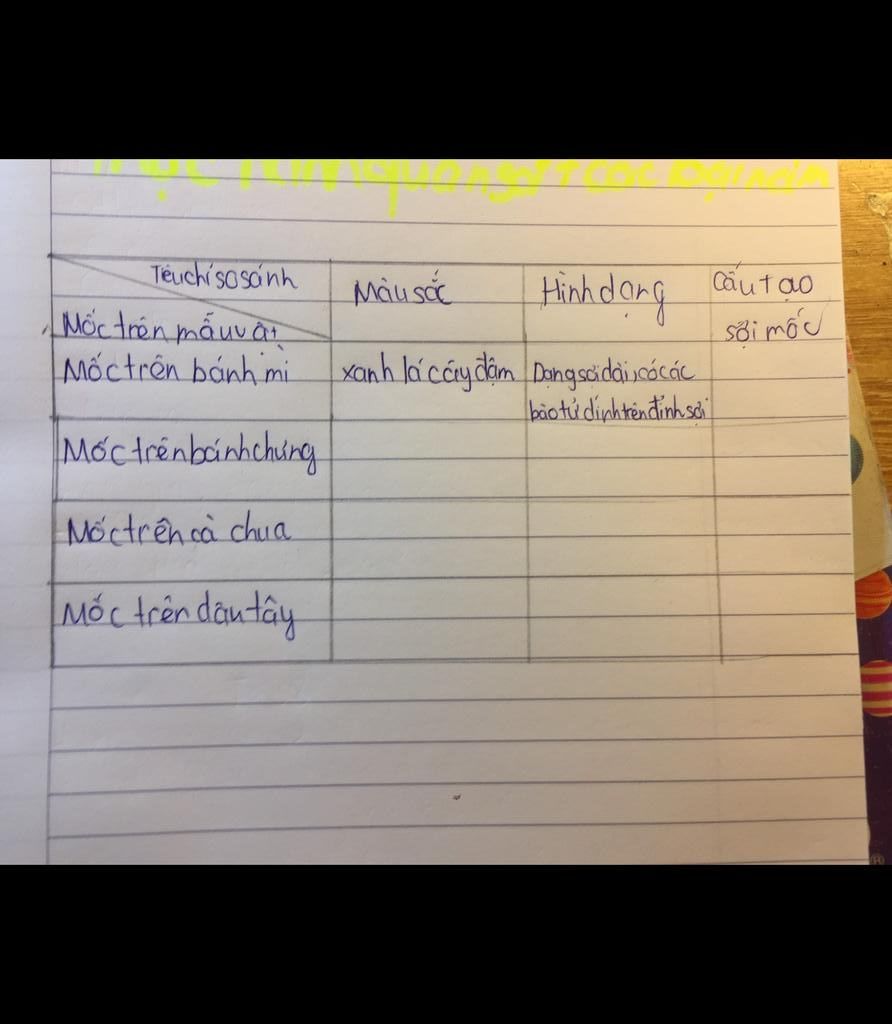 Thực hành quan sát các loại nấm
Tiêu chí so sánh
Màu sắc
Hình dạng
Cấu tạo
sợi mốc
Mốc trên mẫu vật
Mốc trên bánh mì
xanh lá cây đậm
Dạng sợi dài, có các
bào tử dính trên đỉnh sợi
Mốc trên bánh chưng
Mốc trên cà chua
Mốc trên dâu tây